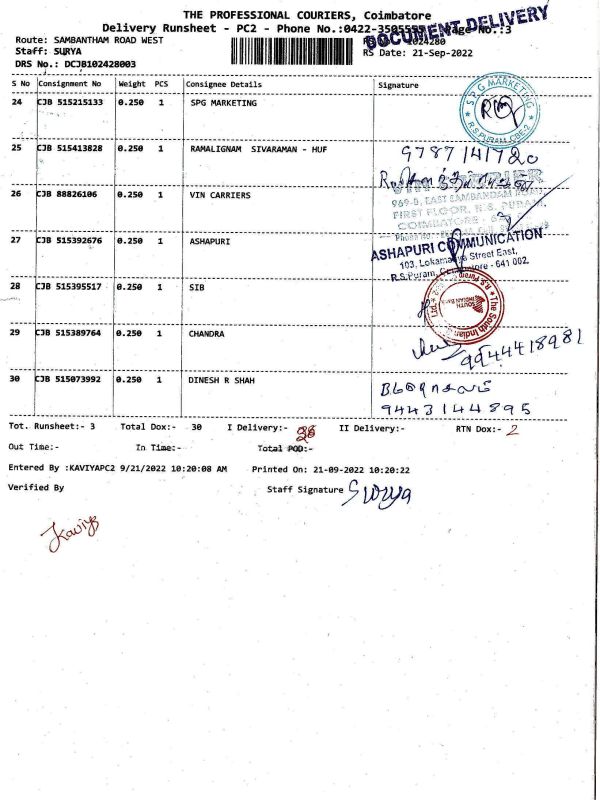 THE PROFESSIONAL COURIERS, Coimbatore
Delivery Runsheet - PC2 - Phone No.:0422-350555 Page No.:3
DOCUMENT DELIVERY
Route: SAMBANTHAM ROAD WEST 1024280
Staff: SURYA RS Date: 21-Sep-2022
DRS No.: DCJB102428003
S No Consignment No Weight PCS Consignee Details Signature
24 CJB 515215133 0.250 1 SPG MARKETING
SPG MARKETING
R.S.PURAM, CBE-2
25 CJB 515413828 0.250 1 RAMALIGNAM SIVARAMAN - HUF 9787141720
26 CJB 88826106 0.250 1 VIN CARRIERS
969-B, EAST SAMBANDAM ROAD,
FIRST FLOOR, R.S. PURAM,
COIMBATORE
27 CJB 515392676 0.250 1 ASHAPURI
ASHAPURI COMMUNICATION
103, Street East,
R.S.Puram, Coimbatore - 641 002.
28 CJB 515395517 0.250 1 SIB
The South Indian
SOUTH INDIAN Bank
29 CJB 515389764 0.250 1 CHANDRA
9944418981
30 CJB 515073992 0.250 1 DINESH R SHAH
9443144895
Tot. Runsheet:- 3 Total Dox:- 30 I Delivery:- II Delivery:- RTN Dox:- 2
Out Time:- In Time:- Total POD:-
Entered By :KAVIYAPC2 9/21/2022 10:20:08 AM Printed On: 21-09-2022 10:20:22
Verified By Staff Signature Surya
Kaviya